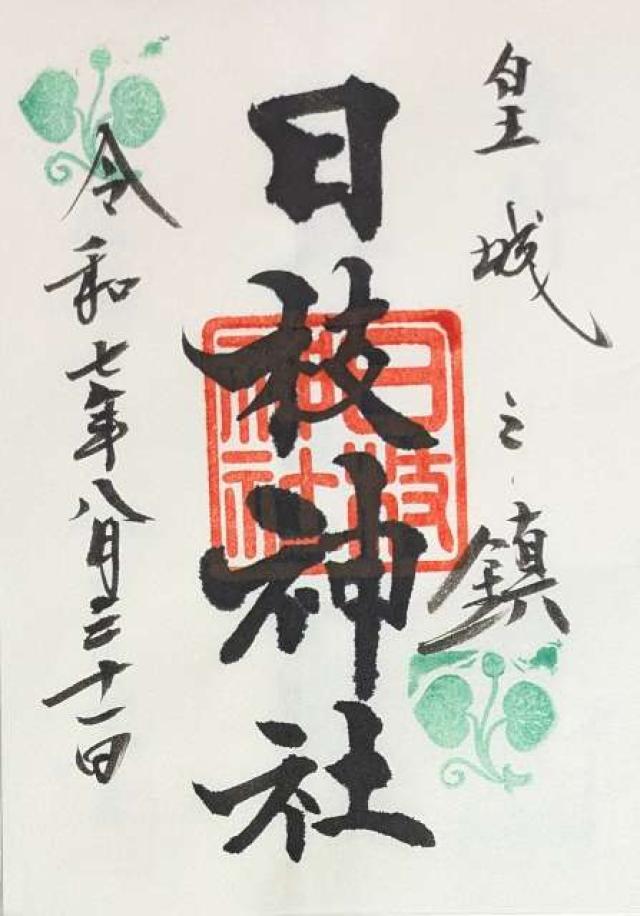 皇城之鎮
日枝神社
日枝
神社
令和七年八月三十一日